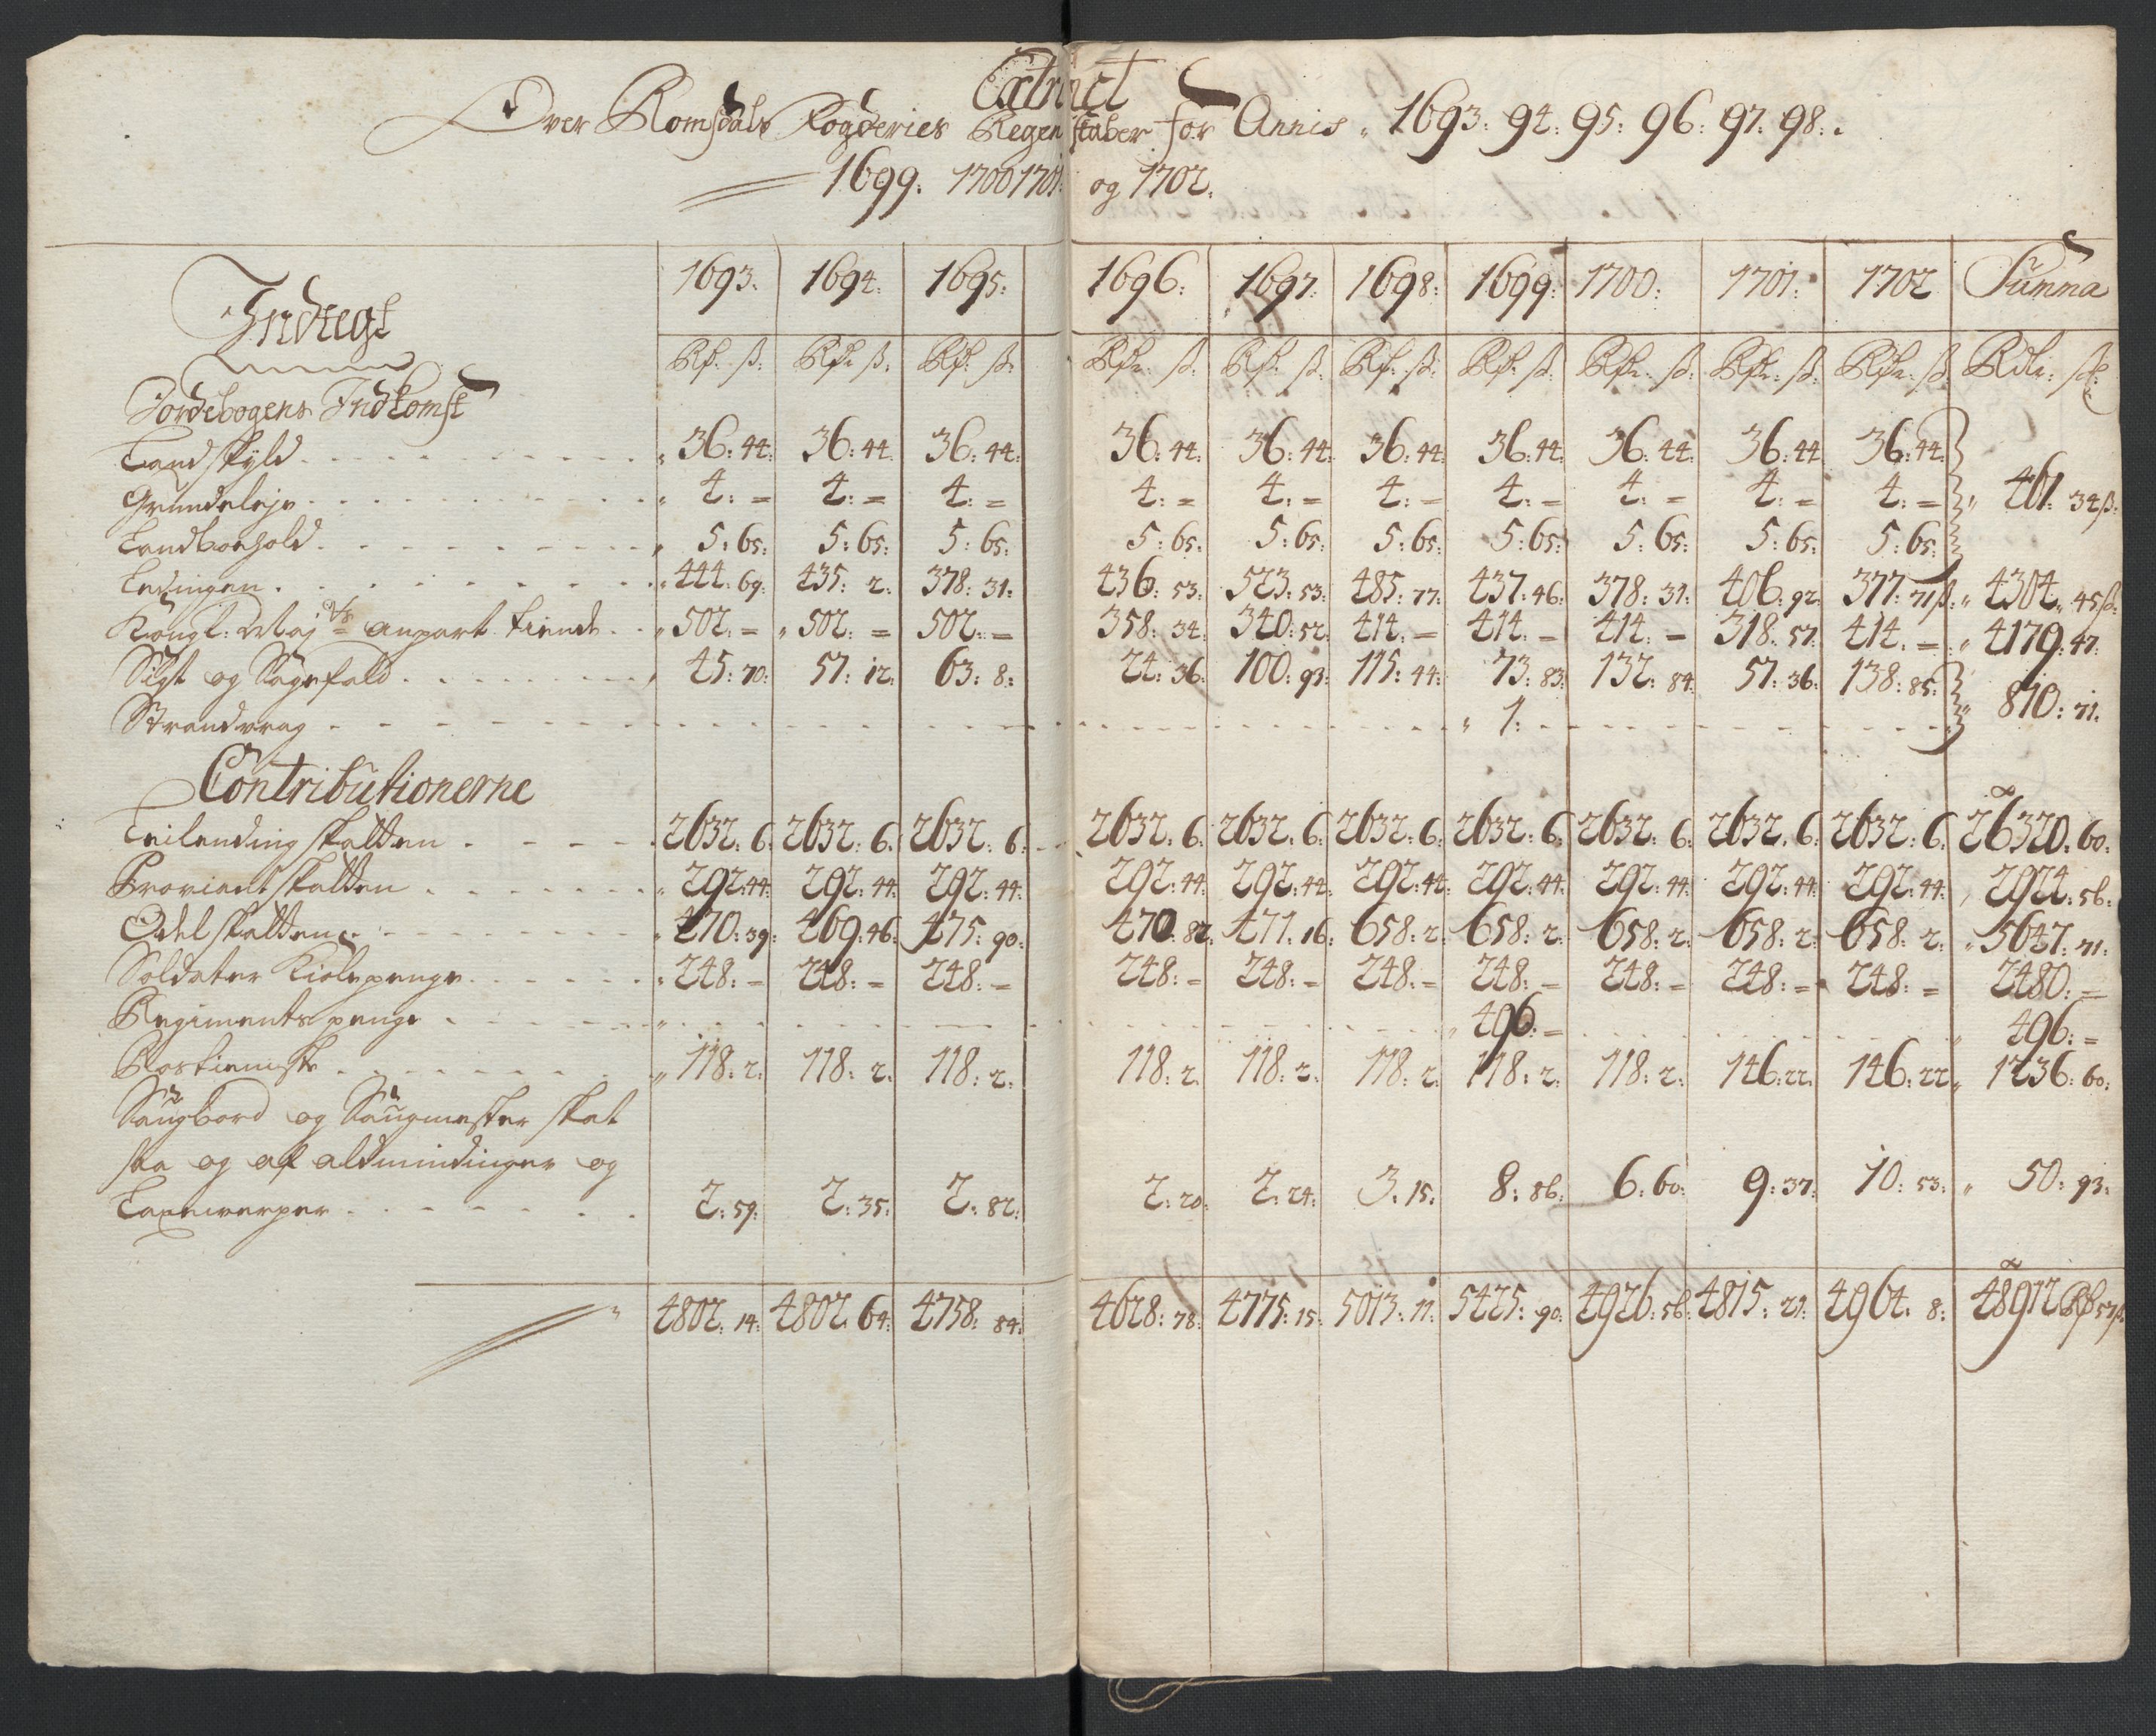 Extract
Over Romsdals Fogderies Regenskaber for Annis 1693: 94: 95: 96: 97: 98:
1699: 1700 1701: og 1702.
Indtegt 1693. 1694. 1695. 1696: 1697: 1698: 1699: 1700: 1701: 1702 Summa
Rdr. ß. Rdr. ß. Rdr. ß. Rdr. ß. Rdr. ß. Rdr. ß. Rdr. ß. Rdr. ß. Rdr. ß. Rdr. ß. Rdlr. ß.
Jordebogens Indkomst
Landskyld 36: 44: 36: 44. 36: 44: 36: 44. 36: 44. 36: 44 36: 44. 36: 44: 36: 44 36: 44.
Grundeleje 4: = 4: = 4: = 4: = 4: = 4: = 4: = 4: = 4: = 4: = 461: 34ß:
Landboehold 5: 65: 5: 65: 5: 65: 5: 65. 5: 65. 5: 65: 5: 65: 5: 65: 5: 65: 5: 65:
Ledingen 444: 69: 435: 2: 378: 31: 436: 53: 523: 53: 485: 77: 437: 46: 378: 31: 406: 92: 377: 71ß: 4304: 45ß:
Kongl: Maj ts anpart tiende 502. = 502: = 502: = 358: 34: 340: 52: 414. = 414. = 414: = 318: 57: 414. = 4179: 47:
Sigt og Sagefald 45: 70: 57: 12: 63: 8: 24: 36: 100: 93: 115: 44: 73: 83: 132: 84: 57: 36: 138: 85:
Strandvrag 1: 810: 71.
Contributionerne
Leilending skatten 2632: 6: 2632: 6: 2632: 6: 2632: 6. 2632: 6. 2632: 6. 2632: 6. 2632: 6. 2632: 6. 2632: 6. 26320: 60:
Proviant skatten 292: 44: 292: 44: 292: 44: 292: 44: 292: 44: 292: 44: 292: 44: 292: 44: 292: 44: 292: 44: 2924: 56:
Odel skatten 470: 39: 469: 46: 475: 90: 470: 82. 471: 16: 658: 2: 658: 2: 658: 2: 658: 2: 658: 2: 5647: 71:
Soldater Kiolepenge 248: = 248: = 248: = 248: = 248: = 248: = 248: = 248: = 248: = 248: = 2480: =
Regiments penge 496: = 496: =
Rostienste 118: 2: 118: 2: 118: 2. 118: 2. 118: 2. 118: 2. 118: 2. 118: 2: 146: 22: 146: 22 1236: 60:
Saugbord og Saugmester skat
saa og af aldmindinger og
Laxewerper 2: 59: 2: 35: 2: 82: 2: 20: 2: 24: 3: 15: 8: 86: 6: 60: 9: 37: 10: 53: 50: 93:
4802: 14: 4802: 64: 4758: 84: 4628: 78: 4775: 15: 5013: 11: 5425: 90: 4926: 56: 4815: 21: 4964: 8: 48912 Rdr 57ß